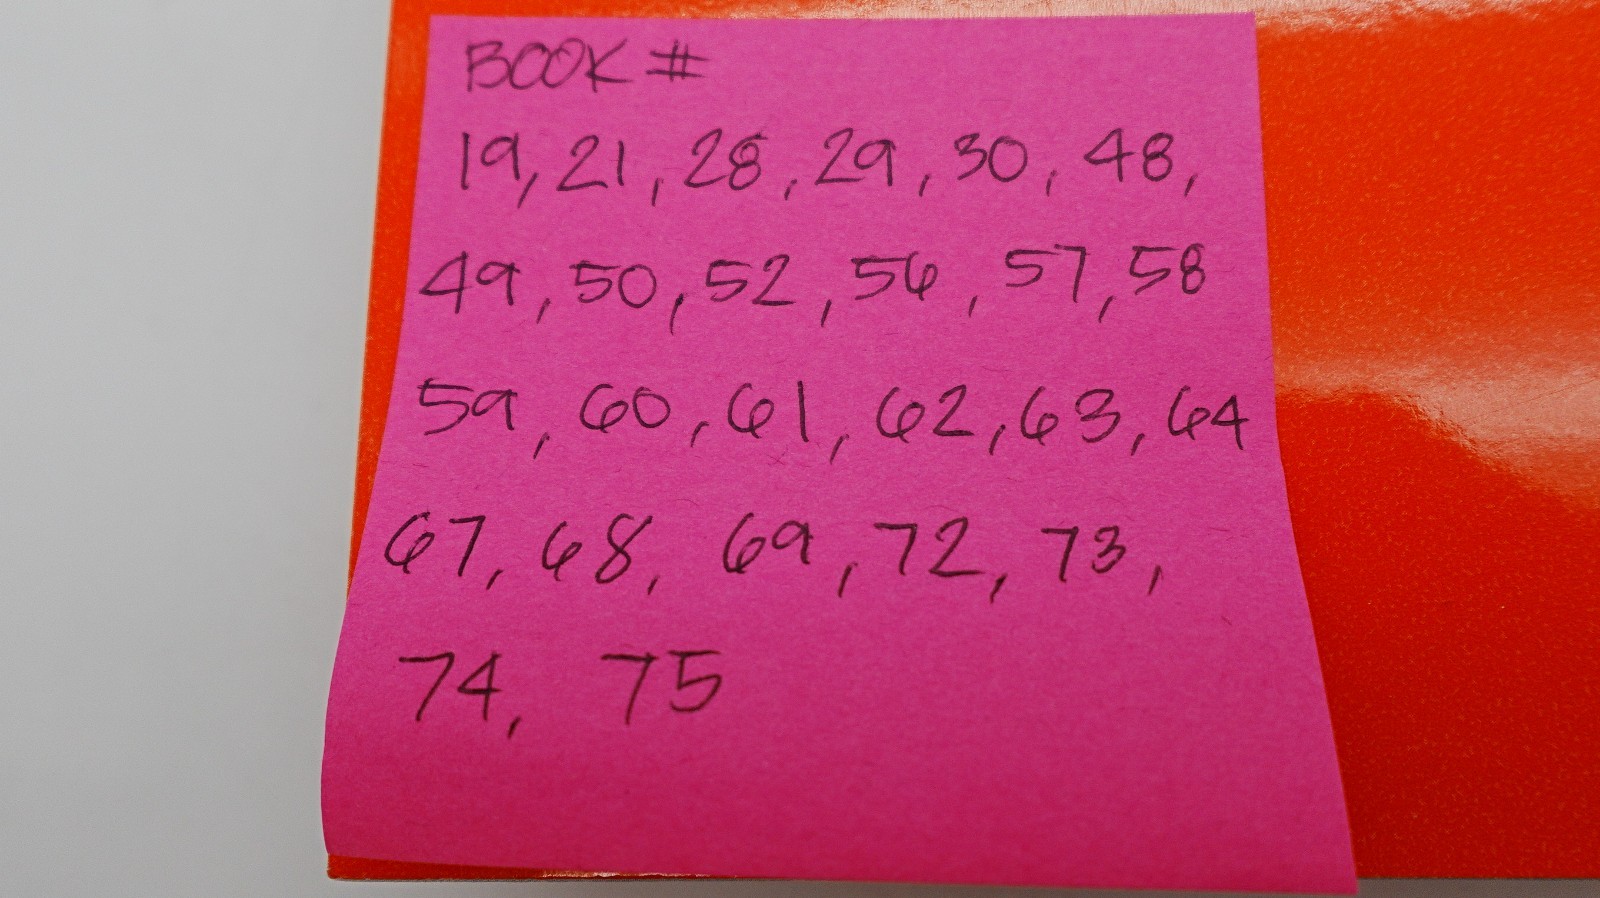 BOOK #
19, 21, 28, 29, 30, 48,
49, 50, 52, 56, 57, 58
59, 60, 61, 62, 63, 64
67, 68, 69, 72, 73,
74, 75